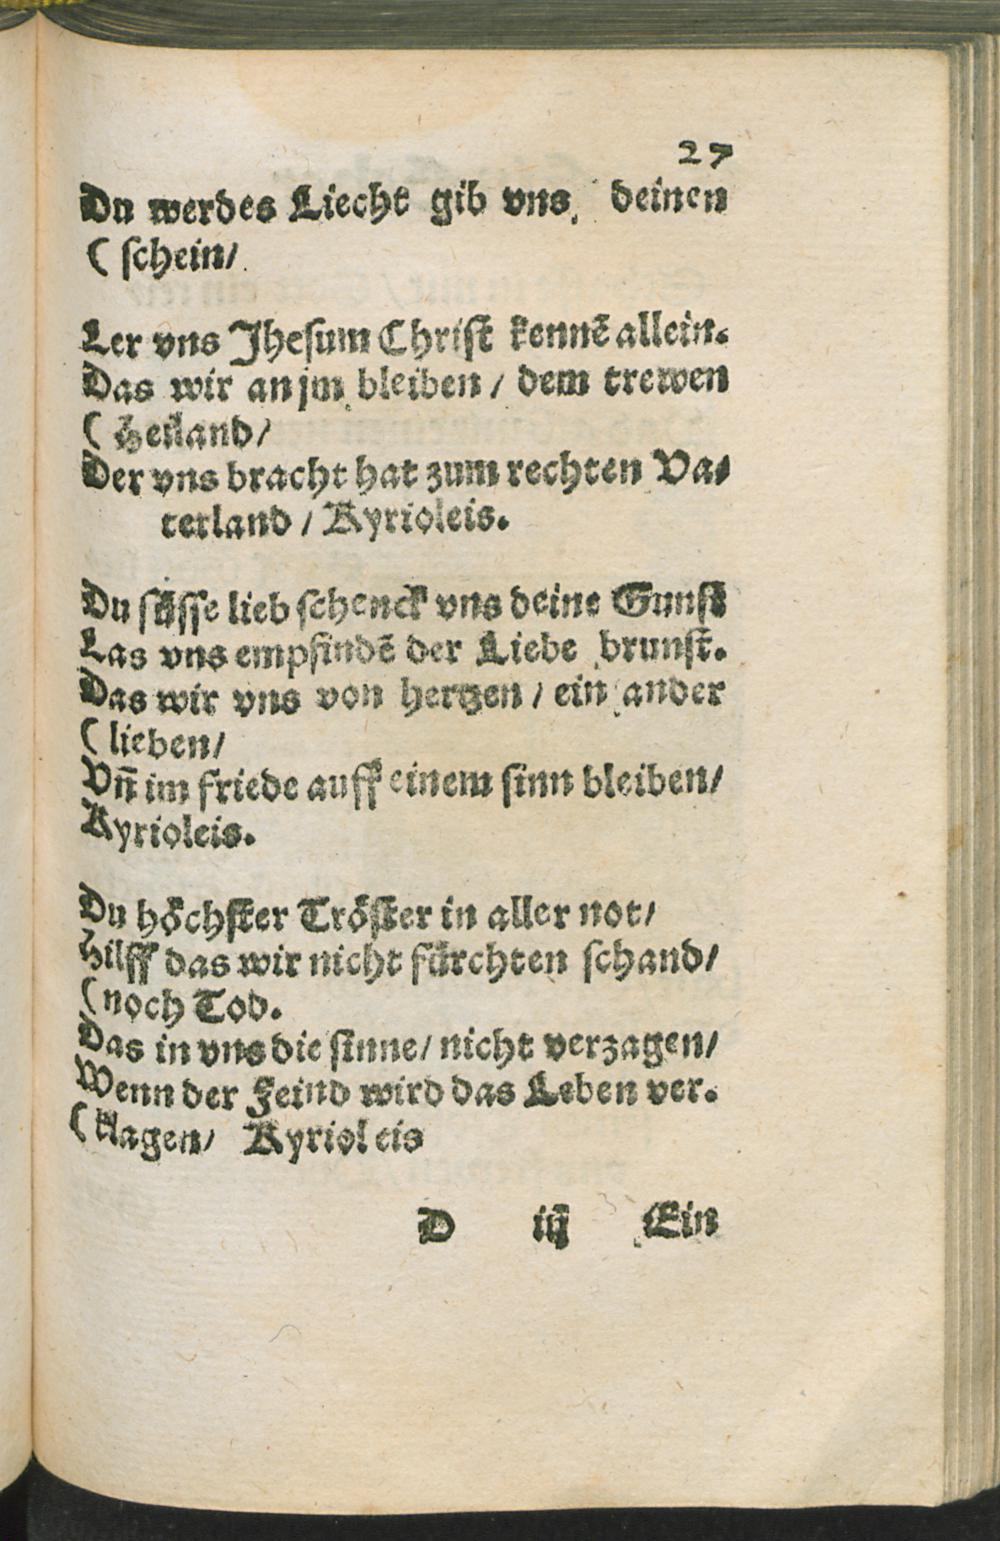 27
Du werdes Liecht gib vns deinen
(schein/
Ler vns Jhesum Christ kennẽ allein.
Das wir an jm bleiben / dem trewen
(Heiland/
Der vns bracht hat zum rechten Va-
terland / Kyrioleis.
Du süsse lieb schenck vns deine Gunst
Las vns empfindẽ der Liebe brunst.
Das wir vns von hertzen / ein ander
(lieben/
Vñ im friede auff einem sinn bleiben/
Kyrioleis.
Du höchster Tröster in aller not/
Hilff das wir nicht fürchten schand/
(noch Tod.
Das in vns die sinne/ nicht verzagen/
Wenn der Feind wird das Leben ver.
(klagen/ Kyriol eis
D iij Ein